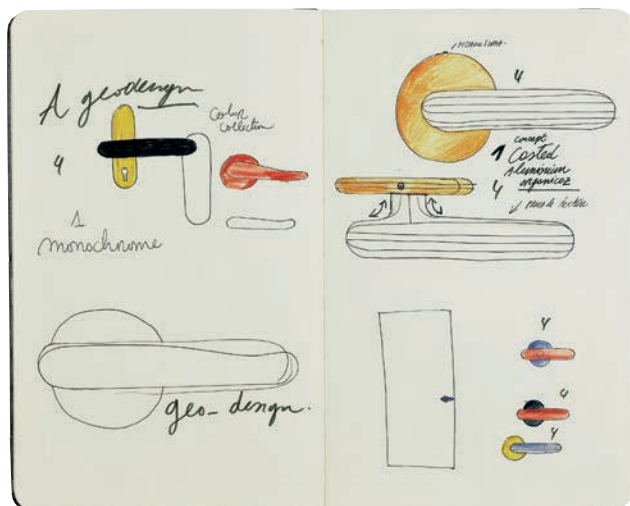 A geodesign
Color
Collection
4
1
monochrome
geo-design.
4
concept
1 Casted
organicoz
4
4
4
4